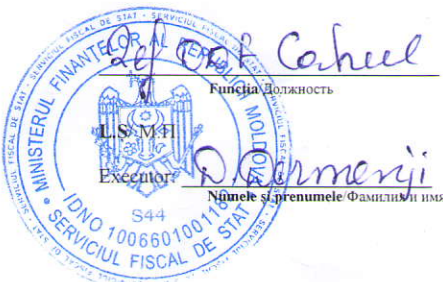 Șef Cahul
Funcția/Должность
L.S/М.П.
Executor: D. Dermenji
Numele și prenumele/Фамилия и имя
MINISTERUL FINANȚELOR AL REPUBLICII MOLDOVA
SERVICIUL FISCAL DE STAT
IDNO
S44
SERVICIUL FISCAL DE STAT · SERVICIUL FISCAL DE STAT